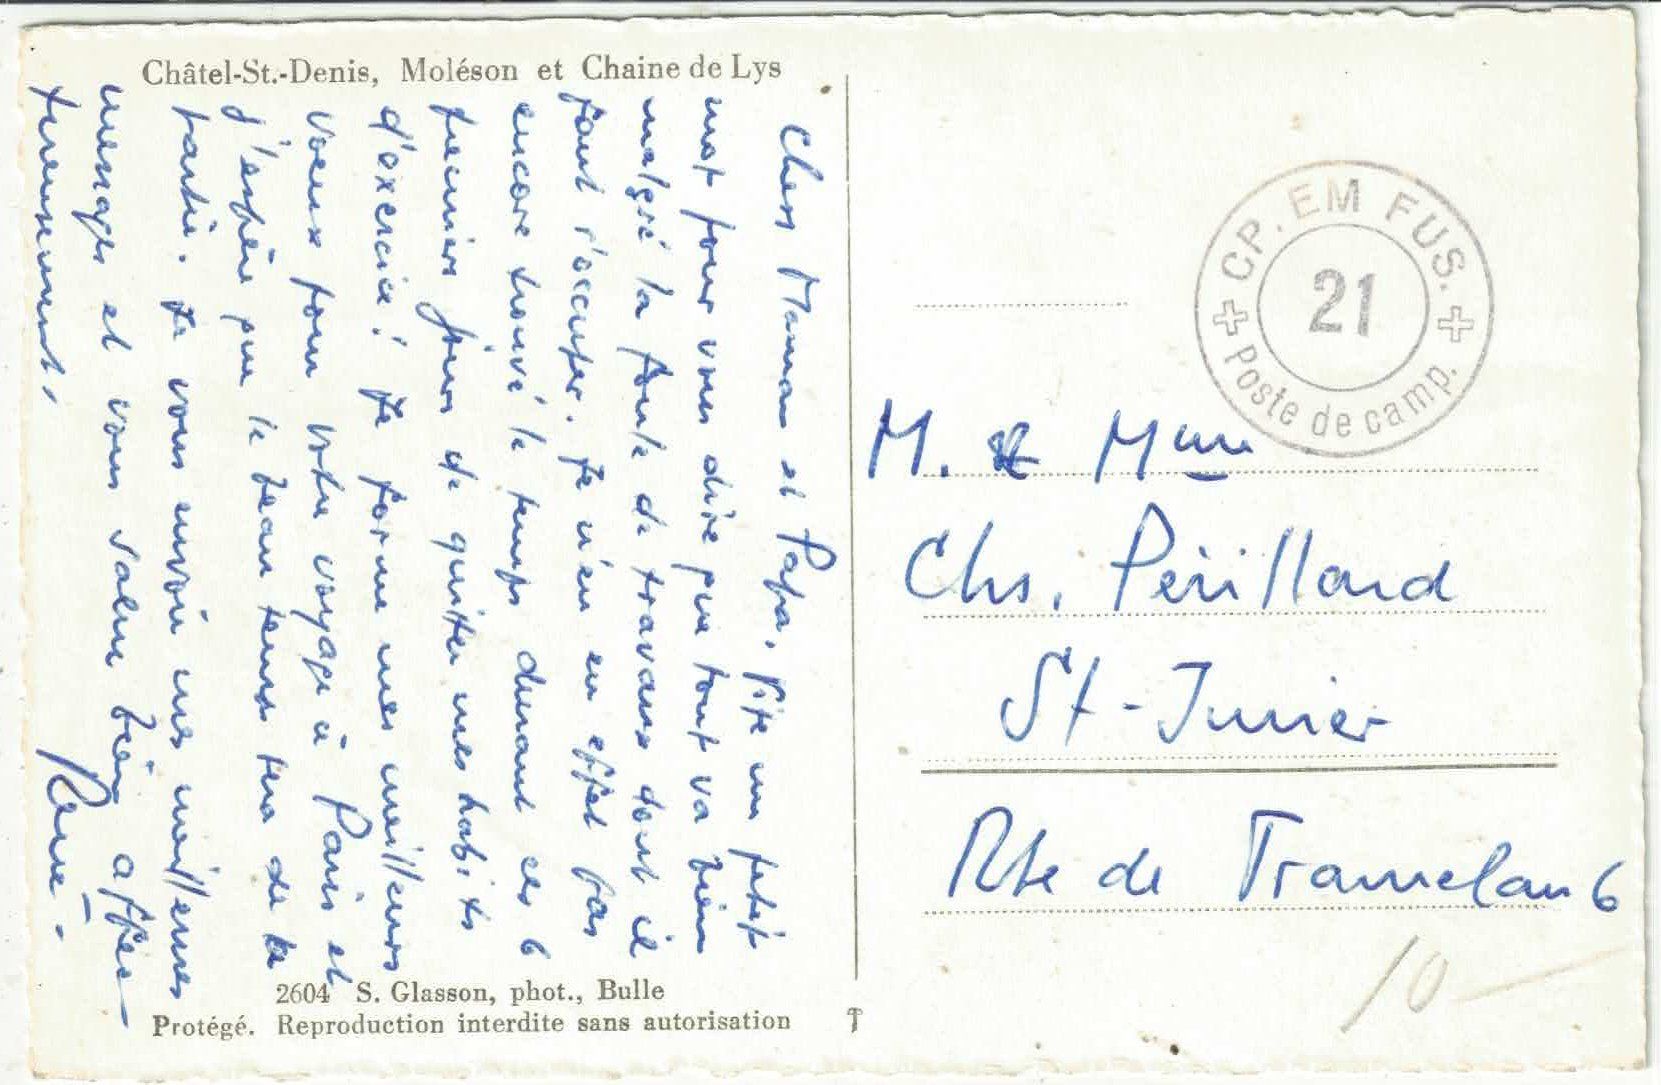 Châtel-St.-Denis, Moléson et Chaine de Lys
Chers Maman et Papa, Vite un petit
mot pour vous dire que tout va bien
malgré la foule de travaux dont il
faut s'occuper. Je n'en en effet pas
encore trouvé le temps durant ces 6
premiers jours de quitter mes habits
d'exercice! Je forme mes meilleurs
voeux pour votre voyage à Paris et
j'espère que le beau temps sera de la
partie. Je vous envoie mes meilleures
messages et vous salue bien affec-
tueusement.
CP. EM FUS.
21
Poste de camp.
M. & Mme
Chs. Périllard
St-Imier
Rte de Tramelan 6
10
2604 S. Glasson, phot., Bulle
Protégé. Reproduction interdite sans autorisation